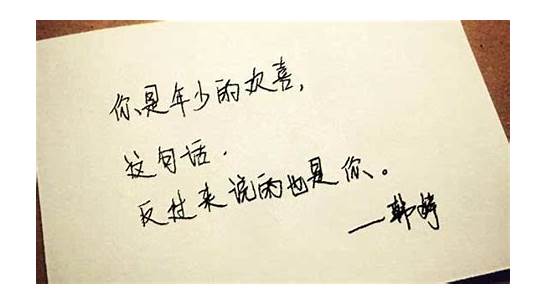 你是年少的欢喜，
这句话，
反过来说的也是你。
—韩婷